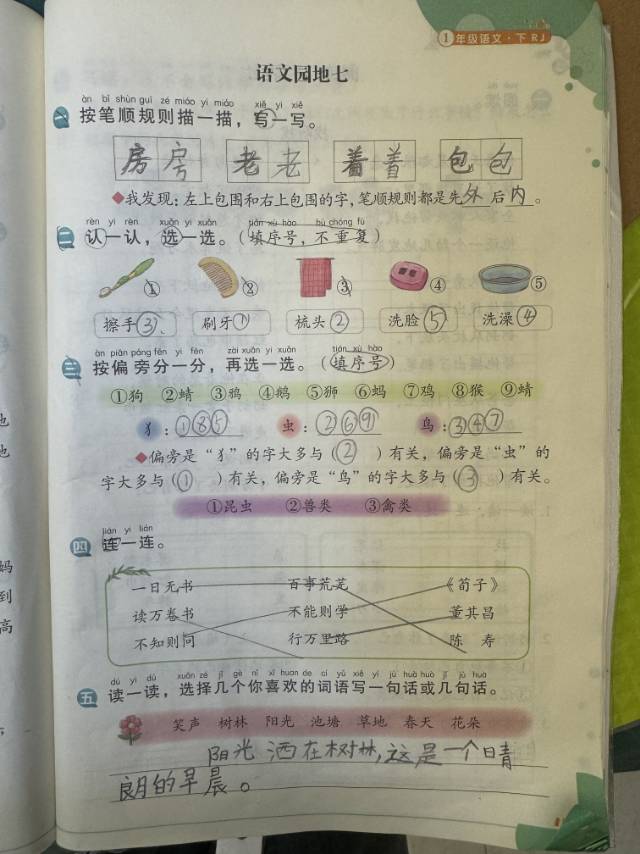 1年级语文·下 RJ
语文园地七
àn bǐ shùn guī zé miáo yi miáo xiě yi xiě
一 按笔顺规则描一描，写一写。
房 房 老 老 着 着 包 包
◆我发现：左上包围和右上包围的字，笔顺规则都是先外后内。
rèn yi rèn xuǎn yi xuǎn tián xù hào bù chóng fù
二 认一认，选一选。（填序号，不重复）
① ② ③ ④ ⑤
擦手③ 刷牙① 梳头② 洗脸⑤ 洗澡④
àn piān páng fēn yi fēn zài xuǎn yi xuǎn tián xù hào
三 按偏旁分一分，再选一选。（填序号）
①狗 ②蜻 ③鸦 ④鹅 ⑤狮 ⑥蚂 ⑦鸡 ⑧猴 ⑨蜻
犭：①⑧⑤ 虫：②⑥⑨ 鸟：③④⑦
◆偏旁是“犭”的字大多与（②）有关，偏旁是“虫”的
字大多与（①）有关，偏旁是“鸟”的字大多与（③）有关。
①昆虫 ②兽类 ③禽类
lián yi lián
四 连一连。
一日无书 百事荒芜 《荀子》
读万卷书 不能则学 董其昌
不知则问 行万里路 陈 寿
dú yi dú xuǎn zé jǐ gè nǐ xǐ huan de cí yǔ xiě yí jù huà huò jǐ jù huà
五 读一读，选择几个你喜欢的词语写一句话或几句话。
笑声 树林 阳光 池塘 草地 春天 花朵
阳光洒在树林，这是一个晴
朗的早晨。